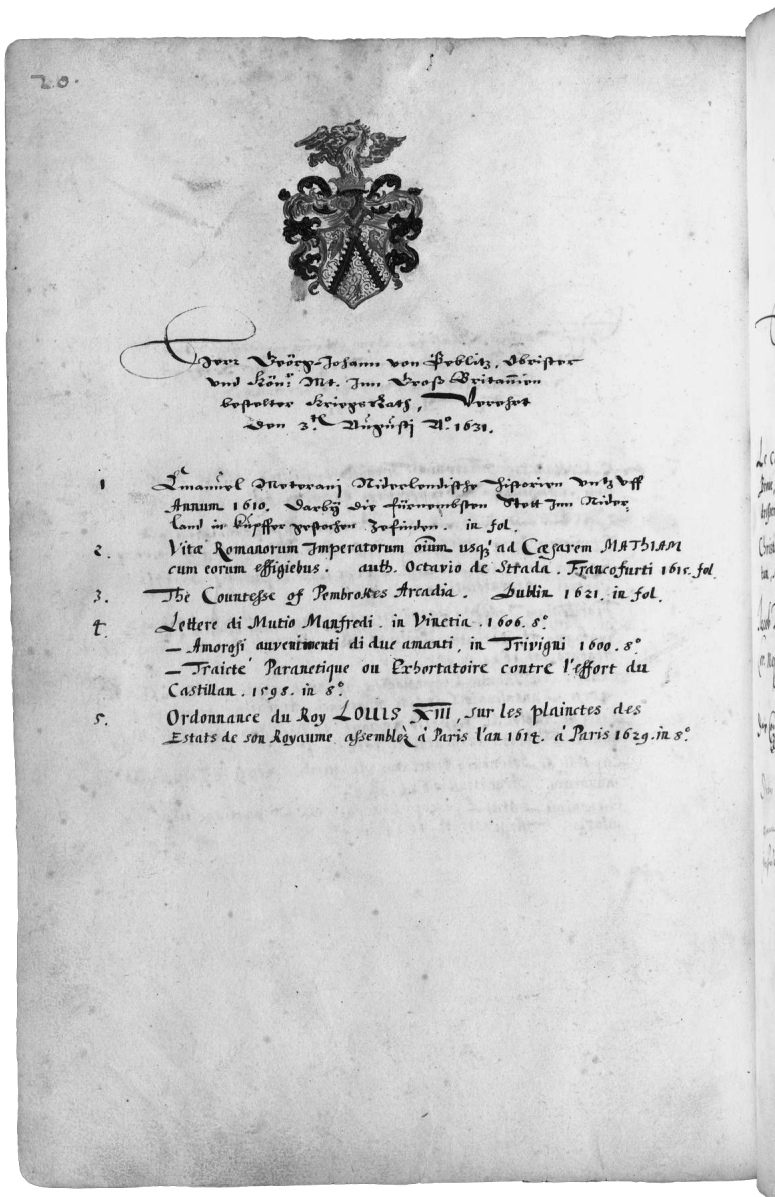 20.
Herr Geörg Johann von Peblitz, Obrister
und Kön.r Mt. Inn Groß Britannien
bestelter KriegsRath, Verehrt
den 3.th Augusti A.o 1631.
1 Emanuel Meterani Niderlendische Historien untz uff
Annum 1610. darbÿ die fürnembsten Stett Inn Nider:
land in kupffer gestochen zefinden. in fol.
2. Vitæ Romanorum Imperatorum oīum usq' ad Cæsarem MATHIAM
cum eorum effigiebus. auth. Octavio de Strada. Francofurti 1615. fol.
3. The Countesse of Pembrokes Arcadia. Dublin 1621. in fol.
4. Lettere di Mutio Manfredi. in Vinetia. 1606. 8.o
— Amorosi auvenimenti di due amanti, in Trivigni 1600. 8.o
— Traicté Paranetique ou Exhortatoire contre l'effort du
Castillan. 1598. in 8.o
5. Ordonnance du Roy LOUIS XIII, sur les plainctes des
Estats de son Royaume assemblez à Paris l'an 1614. à Paris 1629. in 8.o